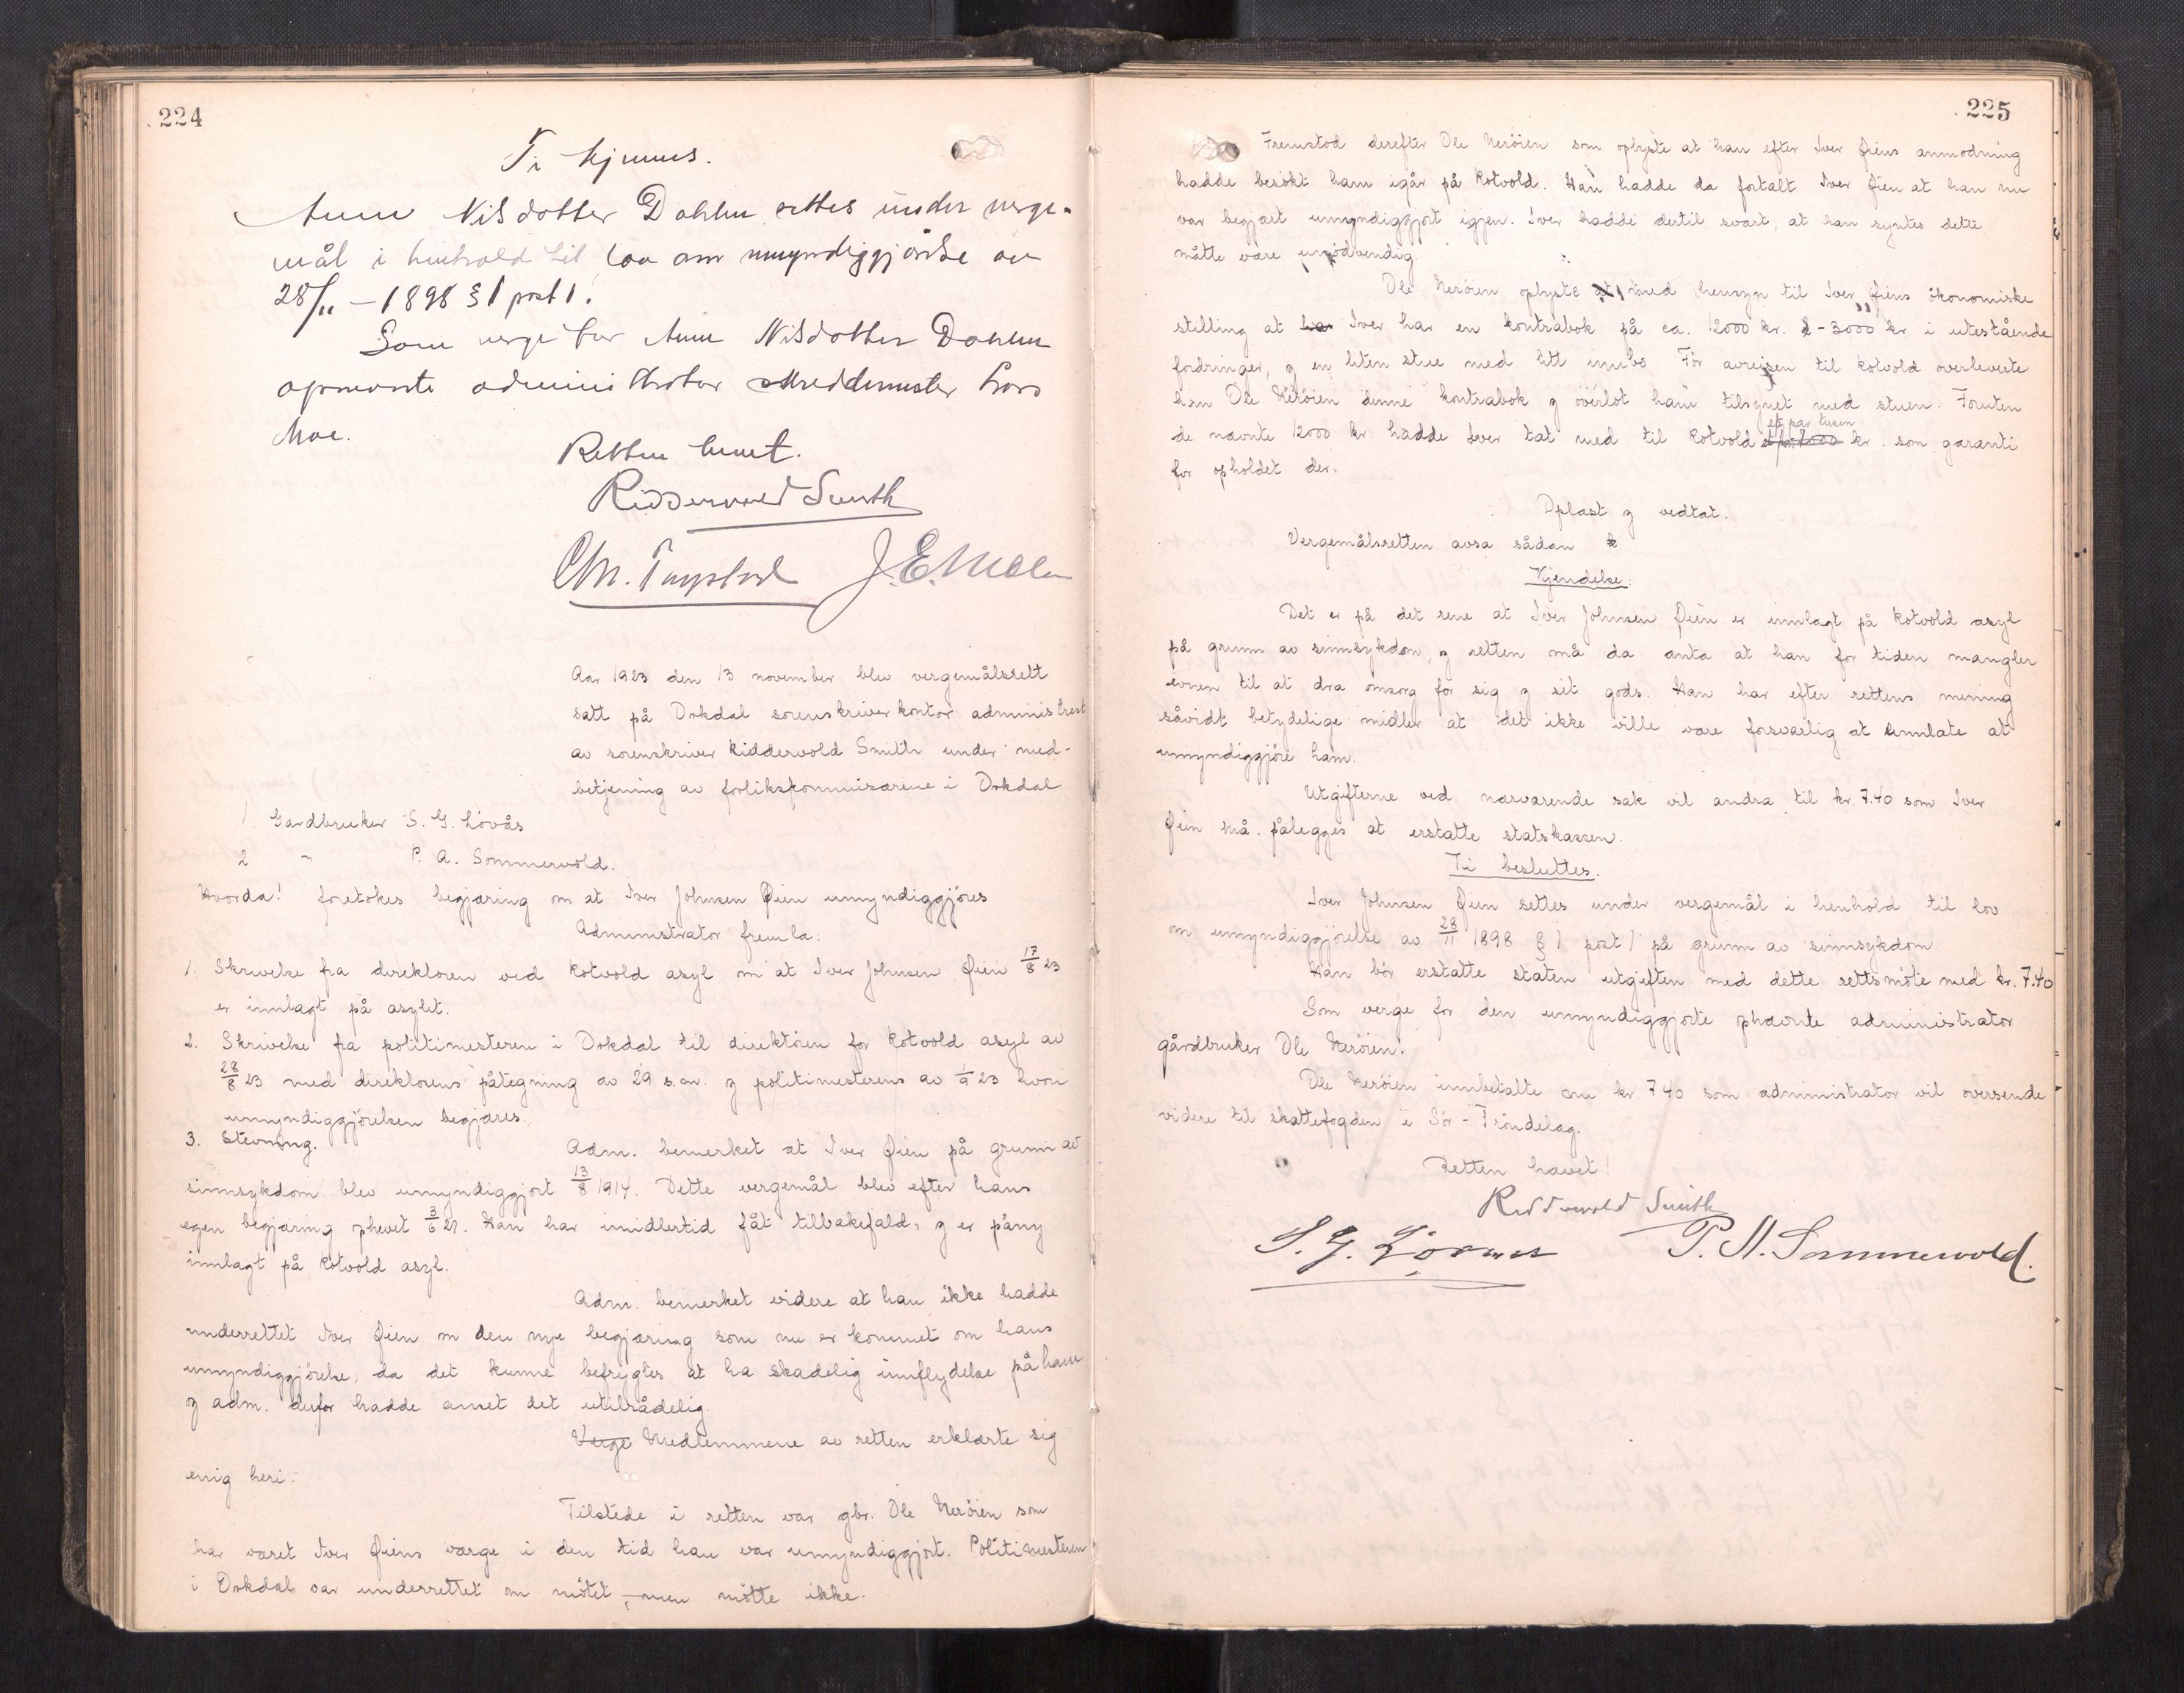 224
Ti kjennes.
Anne Nilsdotter Dahlen settes under verge-
mål i henhold til lov om umyndiggjørelse av
28/11 - 1898 § 1 post 1.
Som verge for Anne Nilsdotter Dahlen
opnevnte administrator Lars
Moe.
Retten hevet.
Riddervold Smith
Chr. J. E. Moen
Aar 1923 den 13 november blev vergemålsrett
satt på Orkdal sorenskriverkontor administrert
av sorenskriver Riddervold Smith under med-
betjening av forlikskommisærene i Orkdal
1. Gardbruker S. G. Lövås
2 " P. A. Sommervold.
Hvorda! foretokes begjæring om at Iver Johnsen Øien umyndiggjöres
Administrator fremla:
1. Skrivelse fra direktören ved Rotvold asyl om at Iver Johnsen Øien 17/8 23
er innlagt på asylet.
2. Skrivelse fra politimesteren i Orkdal til direktören for Rotvold asyl av
28/8 23 med direktörens påtegning av 29 s.m. og politimesterens av 1/9 23 hvori
umyndiggjörelsen begjæres.
3. Stevning.
Adm. bemerket at Iver Øien på grunn av
sinnsykdom blev umyndiggjort 13/8 1914. Dette vergemål blev efter hans
egen begjæring ophevet 3/6 21. Han har imidlertid fåt tilbakefald, og er påny
innlagt på Rotvold asyl.
Adm. bemerket videre at han ikke hadde
underrettet Iver Øien om den nye begjæring som nu er kommet om hans
umyndiggjörelse, da det kunne befryktes at ha skadelig innflydelse på ham
og adm. derfor hadde anset det utilrådelig.
Verge Medlemmene av retten erklærte sig
enig heri.
Tilstede i retten var gbr. Ole Neröien som
har været Iver Øiens værge i den tid han var umyndiggjort. Politimesteren
i Orkdal var underrettet om mötet, men mötte ikke.
225
Fremstod derefter Ole Neröien som oplyste at han efter Iver Øiens anmodning
hadde besökt ham igår på Rotvold. Han hadde da fortalt Iver Øien at han nu
var begjært umyndiggjort igjen. Iver hadde dertil svart, at han syntes dette
måtte være unödvendig.
Ole Neröien oplyste at med hensyn til Iver Øiens ökonomiske
stilling at har Iver har en kontrabok på ca. 12000 kr. 2-3000 kr i utestående
fordringer, og en liten stue med litt innbo För avreisen til Rotvold overleverte
han Ole Neröien denne kontrabok og overlot ham tilsynet med stuen. Foruten
de nævnte 12000 kr hadde Iver tat med til Rotvold et par tusen kr. som garanti
for opholdet der.
Oplæst og vedtat.
Vergemålsretten avsa sådan k
Kjendelse:
Det er på det rene at Iver Johnsen Øien er innlagt på Rotvold asyl
på grunn av sinnsykdom, og retten må da anta at han for tiden mangler
evnen til at dra omsorg for sig og sit gods. Han har efter rettens mening
såvidt betydelige midler at det ikke ville være forsvarlig at unnlate at
umyndiggjöre ham.
Utgifterne ved nærværende sak vil andra til kr. 7.40 som Iver
Øien må pålegges at erstatte statskassen.
Ti besluttes.
Iver Johnsen Øien settes under vergemål i henhold til lov
om umyndiggjörelse av 28/11 1898 § 1 post 1 på grunn av sinnsykdom.
Han bör erstatte staten utgiften med dette rettsmöte med kr. 7.40
Som verge for den umyndiggjorte opnævnte administrator
gårdbruker Ole Neröien.
Ole Neröien innbetalte nu kr. 7.40 som administrator vil oversende
videre til skattefogden i Sör-Tröndelag.
Retten hævet!
Riddervold Smith
S. G. Lövaas P. A. Sommervold.